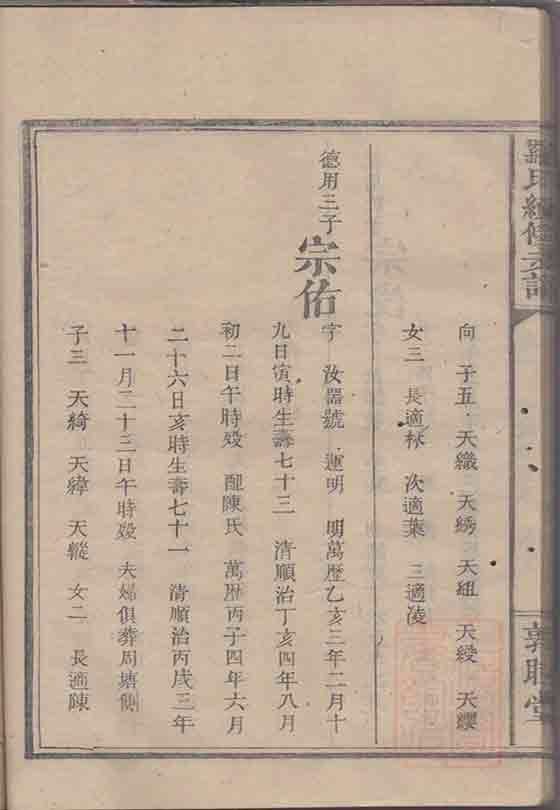 羅氏續修支譜
敦睦堂
向 子五 天織 天綉 天組 天綬 天纓
女三 長適林 次適葉 三適凌
德用三子
宗佑
字 汝器號 蓮明 明萬歷乙亥三年二月十
九日寅時生壽七十三 清順治丁亥四年八月
初二日午時殁 配陳氏 萬歷丙子四年六月
二十六日亥時生壽七十一 清順治丙戌三年
十一月二十三日午時殁 夫婦俱葬周塘側
子三 天綺 天緯 天縱 女二 長適陳